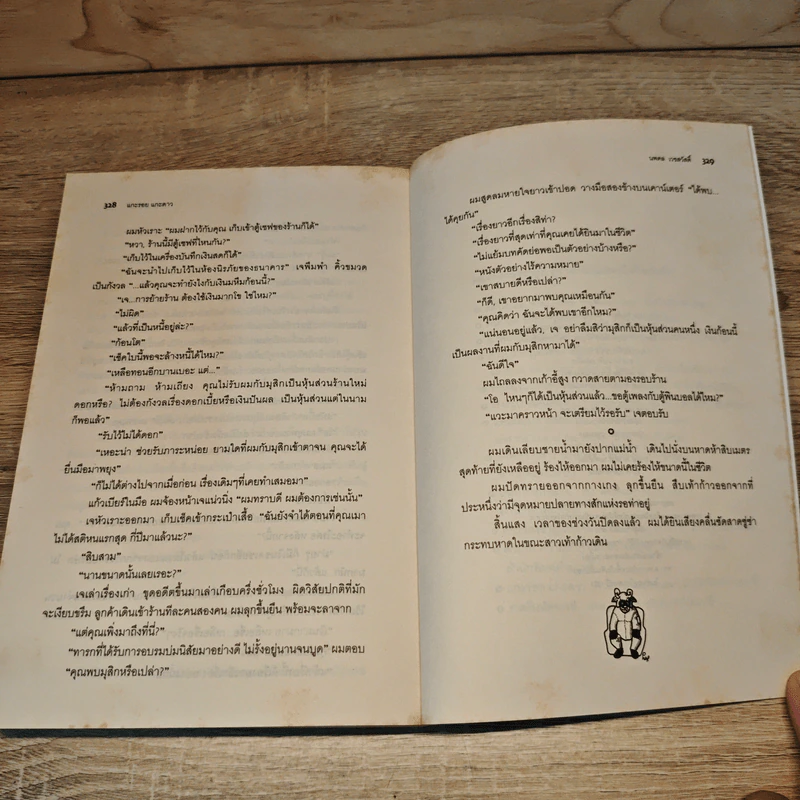 328 แกะรอย แกะดาว
ผมหัวเราะ “ผมฝากไว้กับคุณ เก็บเข้าตู้เซฟของร้านก็ได้”
“หวา, ร้านนี้มีตู้เซฟที่ไหนกัน?”
“เก็บไว้ในเครื่องบันทึกเงินสดก็ได้”
“ฉันจะนำไปเก็บไว้ในห้องนิรภัยของธนาคาร” เจพึมพำ คิ้วขมวด
เป็นกังวล “...แล้วคุณจะทำยังไงกับเงินมหึมาก้อนนี้?”
“เจ...การย้ายร้าน ต้องใช้เงินมากโข ใช่ไหม?”
“ไม่ผิด”
“แล้วที่เป็นหนี้อยู่ล่ะ?”
“ก้อนโต”
“เช็คใบนี้พอจะล้างหนี้ได้ไหม?”
“เหลือทอนอีกบานเบอะ แต่...”
“ห้ามถาม ห้ามเถียง คุณไม่รับผมกับมุสิกเป็นหุ้นส่วนร้านใหม่
ดอกหรือ? ไม่ต้องกังวลเรื่องดอกเบี้ยหรือเงินปันผล เป็นหุ้นส่วนแต่ในนาม
ก็พอแล้ว”
“รับไว้ไม่ได้ดอก”
“เหอะน่า ช่วยรับภาระหน่อย ยามใดที่ผมกับมุสิกเข้าตาจน คุณจะได้
ยื่นมือมาพยุง”
“ก็ไม่ได้ต่างไปจากเมื่อก่อน เรื่องเดิมๆที่เคยทำเสมอมา”
แก้วเบียร์ในมือ ผมจ้องหน้าเจแน่วนิ่ง “ผมทราบดี ผมต้องการเช่นนั้น”
เจหัวเราะออกมา เก็บเช็คเข้ากระเป๋าเสื้อ “ฉันยังจำได้ตอนที่คุณเมา
ไม่ได้สติหนแรกสุด กี่ปีมาแล้วนะ?”
“สิบสาม”
“นานขนาดนั้นเลยเรอะ?”
เจเล่าเรื่องเก่า ขุดอดีตขึ้นมาเล่าเกือบครึ่งชั่วโมง ผิดวิสัยปกติที่มัก
จะเงียบขรึม ลูกค้าเดินเข้าร้านทีละคนสองคน ผมลุกขึ้นยืน พร้อมจะลาจาก
“แต่คุณเพิ่งมาถึงที่นี่?”
“ทารกที่ได้รับการอบรมบ่มนิสัยมาอย่างดี ไม่รั้งอยู่นานจนบูด” ผมตอบ
“คุณพบมุสิกหรือเปล่า?”
นพดล เวชสวัสดิ์ 329
ผมสูดลมหายใจยาวเข้าปอด วางมือสองข้างบนเคาน์เตอร์ “ได้พบ...
ได้คุยกัน”
“เรื่องยาวอีกเรื่องสิท่า?
“เรื่องยาวที่สุดเท่าที่คุณเคยได้ยินมาในชีวิต”
“ไม่แย้มบทคัดย่อพอเป็นตัวอย่างบ้างหรือ?”
“หนังตัวอย่างไร้ความหมาย”
“เขาสบายดีหรือเปล่า?”
“ก็ดี, เขาอยากมาพบคุณเหมือนกัน”
“คุณคิดว่า ฉันจะได้พบเขาอีกไหม?”
“แน่นอนอยู่แล้ว, เจ อย่าลืมสิว่ามุสิกก็เป็นหุ้นส่วนคนหนึ่ง เงินก้อนนี้
เป็นผลงานที่ผมกับมุสิกหามาได้”
“ฉันดีใจ”
ผมไถลลงจากเก้าอี้สูง กวาดสายตามองรอบร้าน
“โอ ไหนๆก็ได้เป็นหุ้นส่วนแล้ว...ขอตู้เพลงกับตู้พินบอลได้ไหม?”
“แวะมาคราวหน้า จะเตรียมไว้รอรับ” เจตอบรับ
ผมเดินเลียบชายน้ำมายังปากแม่น้ำ เดินไปนั่งบนหาดห้าสิบเมตร
สุดท้ายที่ยังเหลืออยู่ ร้องไห้ออกมา ผมไม่เคยร้องไห้ขนาดนี้ในชีวิต
ผมปัดทรายออกจากกางเกง ลุกขึ้นยืน สืบเท้าก้าวออกจากที่
ประหนึ่งว่ามีจุดหมายปลายทางสักแห่งรอท่าอยู่
สิ้นแสง เวลาของช่วงวันปิดลงแล้ว ผมได้ยินเสียงคลื่นซัดสาดซู่ซ่า
กระทบหาดในขณะสาวเท้าก้าวเดิน